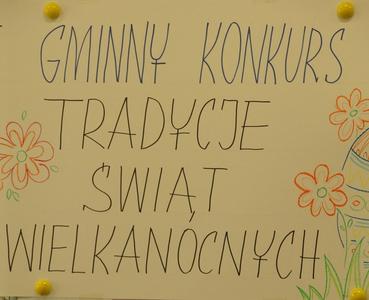 GMINNY KONKURS
TRADYCJE
ŚWIĄT
WIELKANOCNYCH